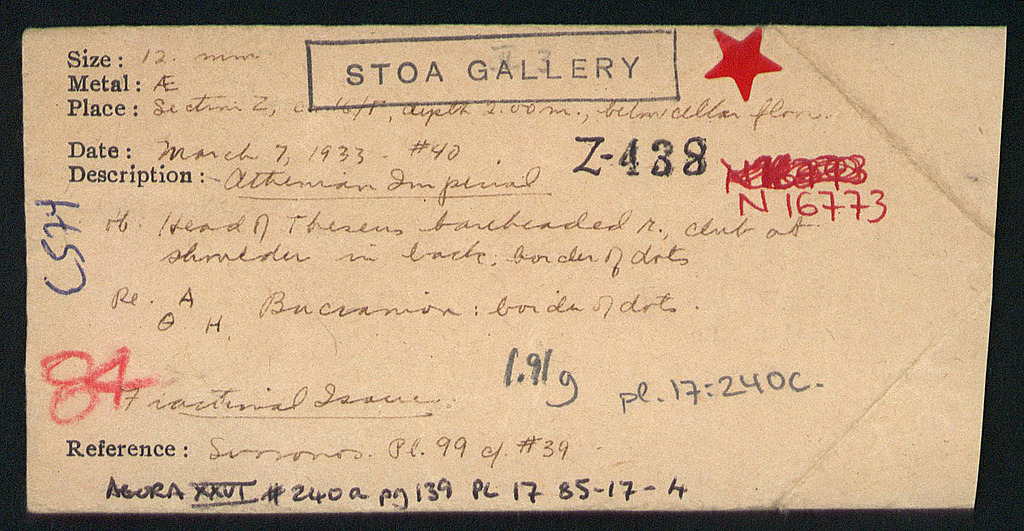 Size: 12. mm.
STOA GALLERY
Metal: Æ
Place: Section Z, depth 2.00 m., below cellar floor.
Date: March 7, 1933 - #40
Z-438
Description: - Athenian Imperial
N 16773
C574
Ob. Head of Theseus bareheaded r., club at
shoulder in back. border of dots
Re. A
Θ H Bucranion: border of dots.
84
1.91 g
pl. 17:240c.
Fractional Issue.
Reference: Svoronos. Pl. 99 cf. #39
AGORA XXVI # 240a pg 139 PL 17 85-17-4